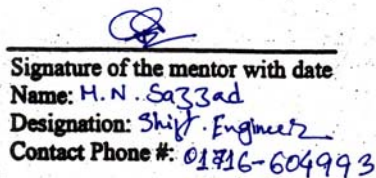 Signature of the mentor with date
Name: M.N. Sazzad
Designation: Shift. Engineer
Contact Phone #: 01716-604993